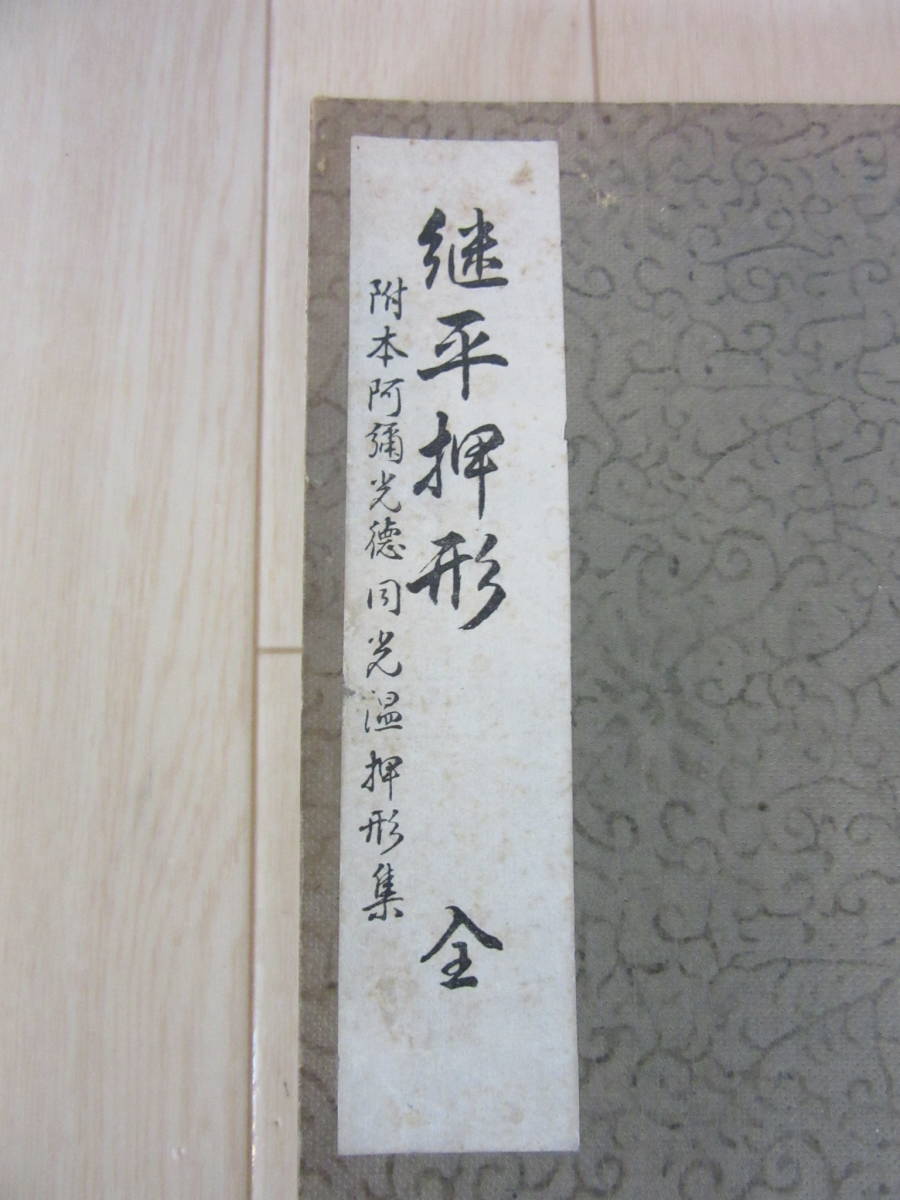 继平押形 全
附本阿彌光德同光温押形集